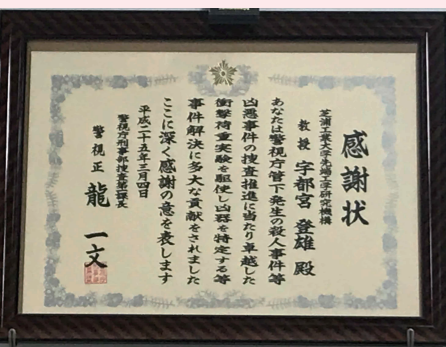 感謝状
芝浦工業大学先端工学研究機構
教授 宇都宮 登雄 殿
あなたは警視庁管下発生の殺人事件等
凶悪事件の捜査推進に当たり卓越した
衝撃荷重実験を駆使し凶器を特定する等
事件解決に多大な貢献をされました
ここに深く感謝の意を表します
平成二十五年三月四日
警視庁刑事部捜査第一課長
警視正 龍 一文